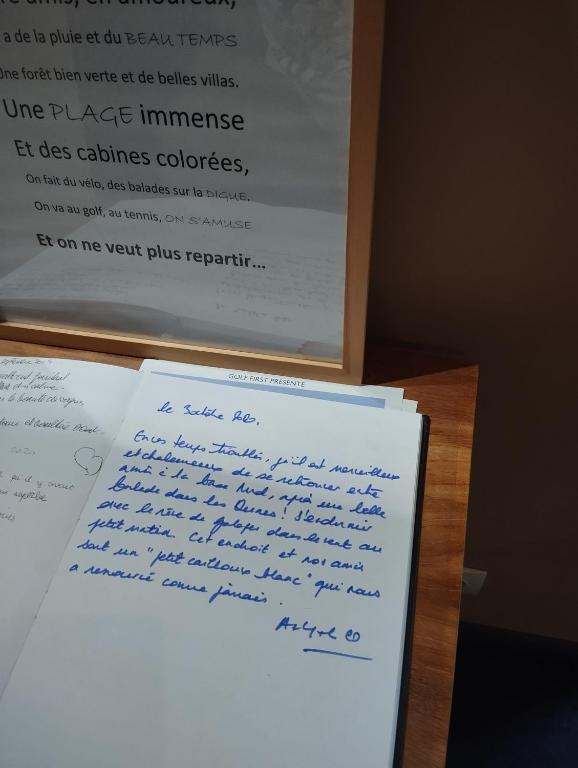 amis, en amoureux,
a de la pluie et du BEAU TEMPS
Une forêt bien verte et de belles villas.
Une PLAGE immense
Et des cabines colorées,
On fait du vélo, des balades sur la DIGUE.
On va au golf, au tennis, ON S'AMUSE
Et on ne veut plus repartir...
GOLF FIRST PRÉSENTE
2020
le 3 octobre 2020.
En ces temps troublés, qu'il est merveilleux
et chaleureux de se retrouver entre
amis à la Nord, après une belle
balade dans les Dunes! S'endormir
avec le rêve de galoper dans le vent au
petit matin. Cet endroit et nos amis
sont un "petit caillou blanc" qui nous
a ressourcé comme jamais.